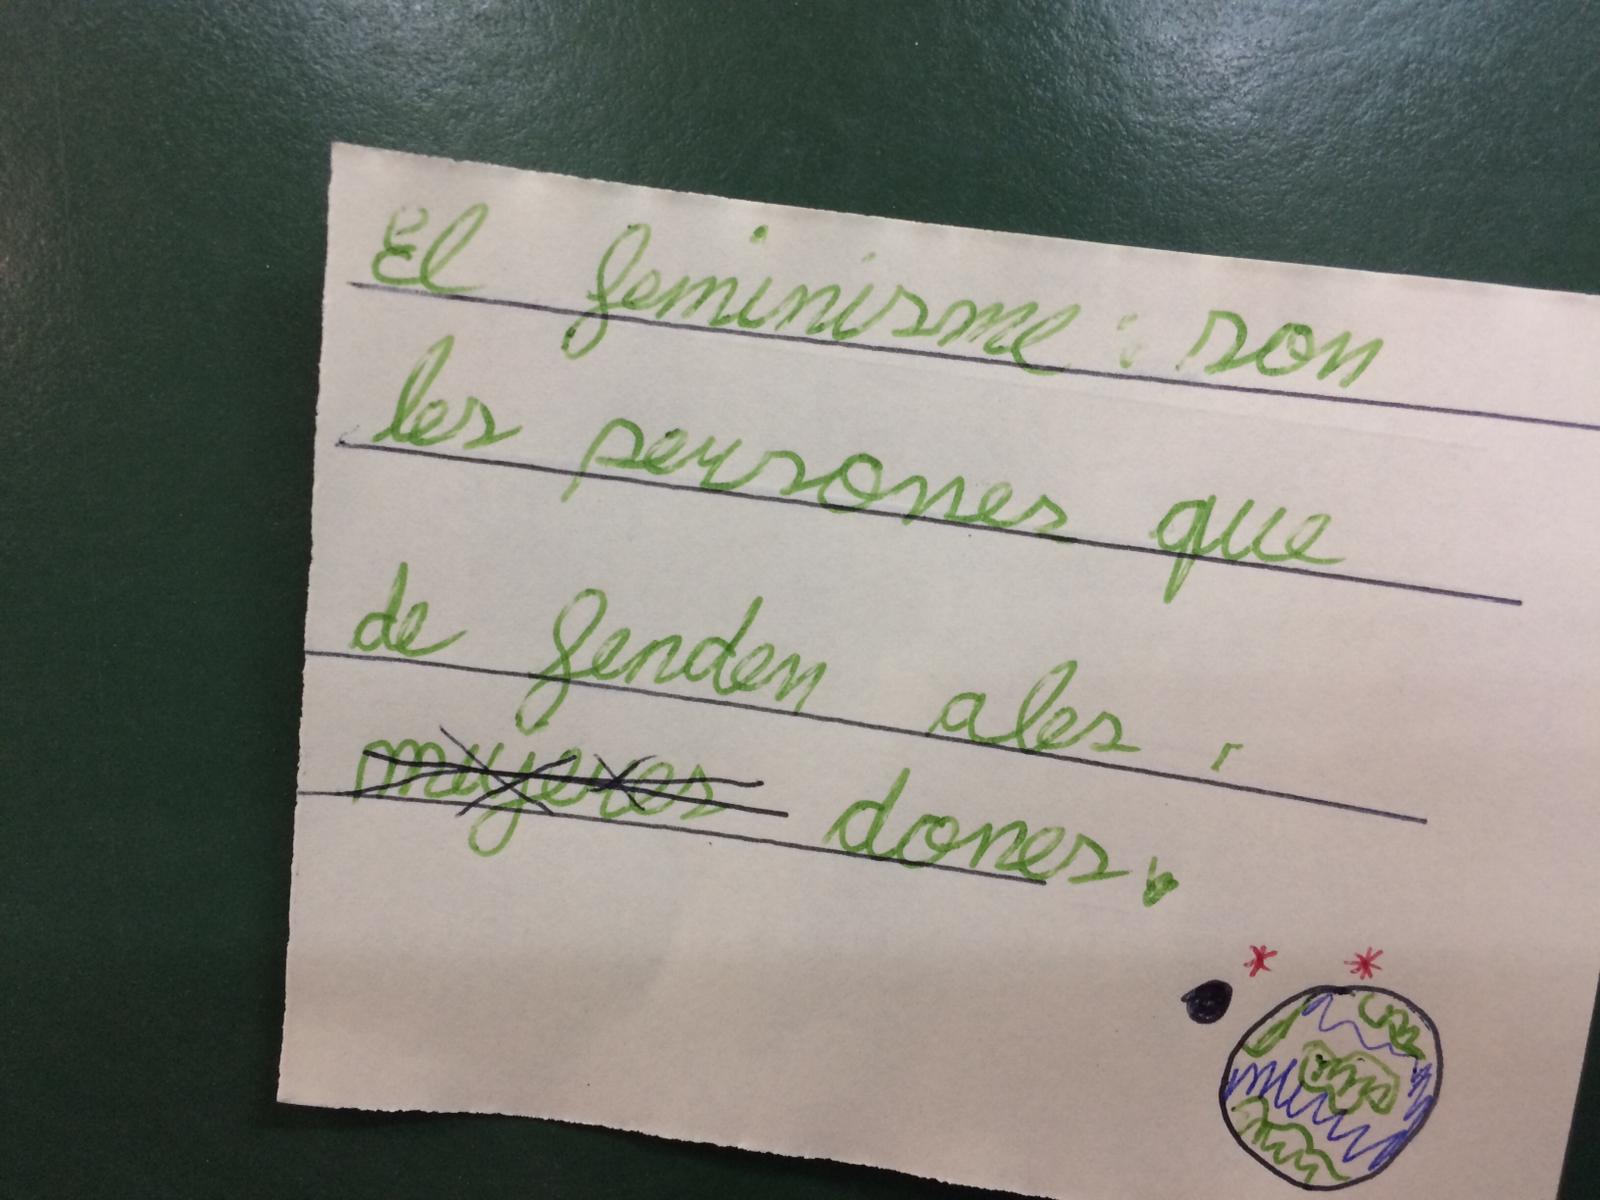 El feminisme: son
les persones que
de fenden ales
mujeres dones.